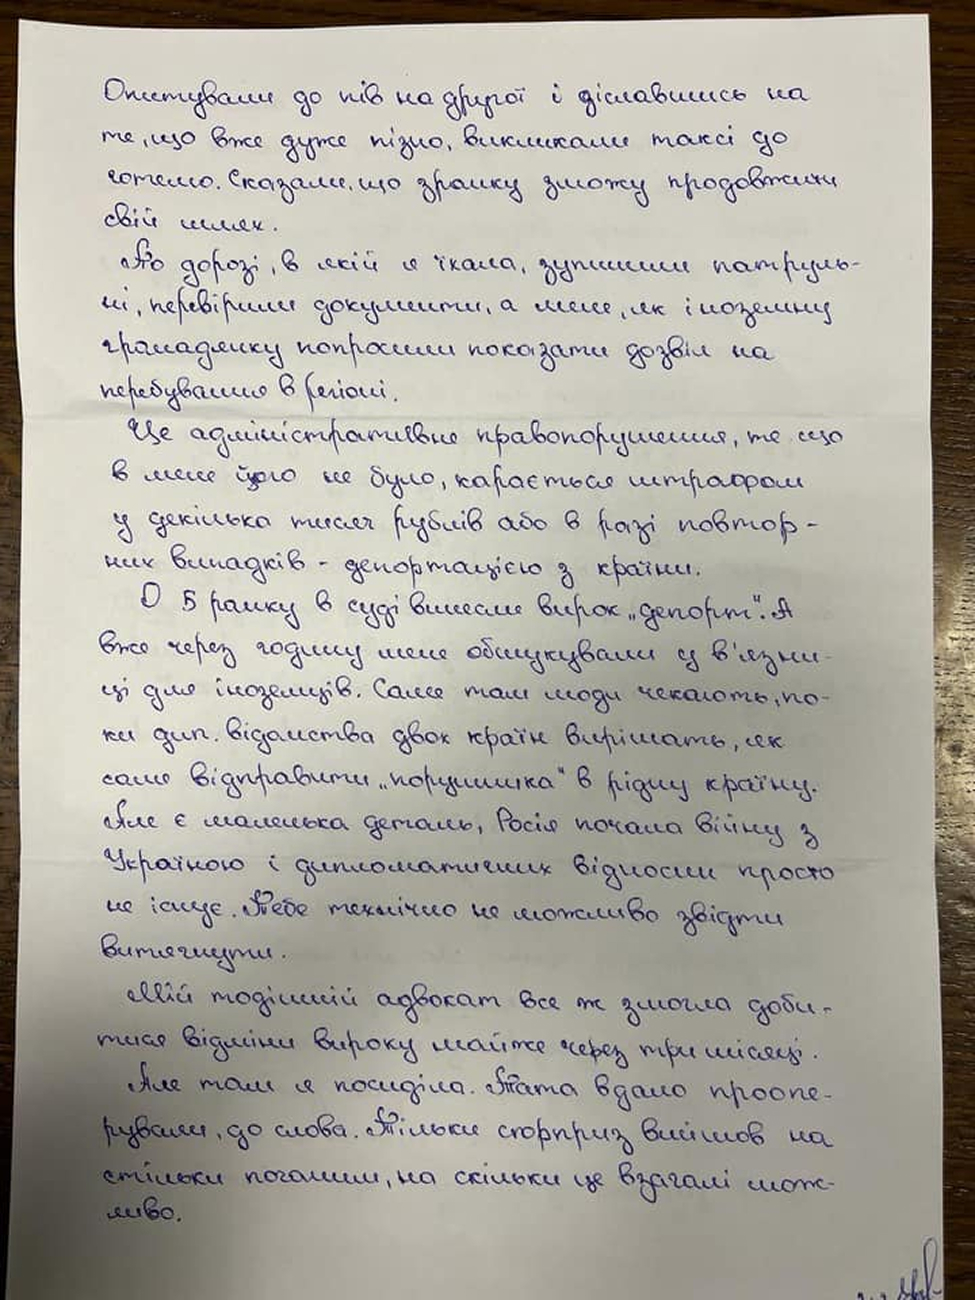 Опитували до пів на другої і зіславшись на
те, що вже дуже пізно, викликали таксі до
готелю. Сказали, що зранку зможу продовжити
свій шлях.
По дорозі, в якій я їхала, зупинили патруль-
ні, перевірили документи, а мене, як іноземну
громадянку попросили показати дозвіл на
перебування в регіоні.
Це адміністративне правопорушення, те що
в мене його не було, карається штрафом
у декілька тисяч рублів або в разі повтор-
них випадків - депортацією з країни.
О 5 ранку в суді винесли вирок „депорт". А
вже через годину мене обшукували у в'язни-
ці для іноземців. Саме там люди чекають, по-
ки дип. відомства двох країн вирішать, як
саме відправити „порушника" в рідну країну.
Але є маленька деталь, Росія почала війну з
Україною і дипломатичних відносин просто
не існує. Тебе технічно не можливо звідти
витягнути.
Мій тодішній адвокат все ж змогла доби-
тися відміни вироку майже через три місяці.
Але там я посиділа. Тата вдало проопе-
рували, до слова. Тільки сюрприз вийшов на
стільки поганим, на скільки це взагалі мож-
ливо.